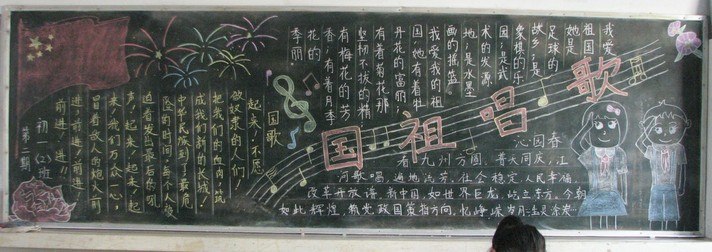 歌唱祖国
我爱
祖国
她是
足球的
故乡;是
象棋的乐
园;是武
术的发源
地;是水墨
画的摇篮。
我爱我的祖
国,她有着牡
丹花的富丽,
有着菊花那
坚韧不拔的精
有梅花的芳
香;有着月季
花的
季丽.
国歌
起来!不愿
做奴隶的人们!
把我们的血肉,筑
成我们新的长城!
中华民族到了最危
险的时间,每个人被
迫着发出最后的吼
声,起来!起来!起
来!我们万众一心,
冒着敌人的炮火前
进,前进!前进!
前进!进!!
初一(2)班
第二期
沁园春
有九州方圆,普天同庆,江
河歌唱,遍地流芳,社会稳定,人民幸福,
改革开放谱,新中国,如世界巨龙,屹立东方,今朝
如此辉煌,赖党政国策指方向,忆峥嵘岁月